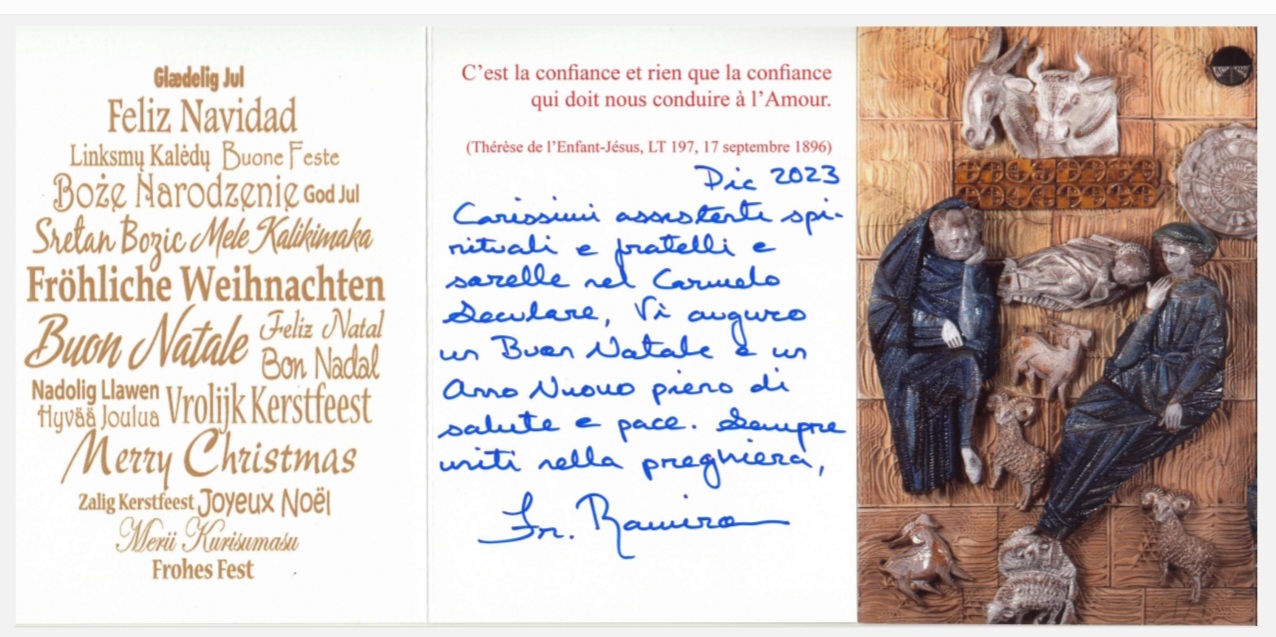 Glædelig Jul
Feliz Navidad
Linksmų Kalėdų Buone Feste
Boże Narodzenie God Jul
Sretan Bozic Mele Kalikimaka
Fröhliche Weihnachten
Buon Natale Feliz Natal
Bon Nadal
Nadolig Llawen
Hyvää Joulua Vrolijk Kerstfeest
Merry Christmas
Zalig Kerstfeest Joyeux Noël
Merii Kurisumasu
Frohes Fest
C’est la confiance et rien que la confiance
qui doit nous conduire à l’Amour.
(Thérèse de l’Enfant-Jésus, LT 197, 17 septembre 1896)
Dic 2023
Carissimi assistenti spi-
rituali e fratelli e
sorelle nel Carmelo
Seculare, Vi auguro
un Buon Natale e un
Anno Nuovo pieno di
salute e pace. Sempre
uniti nella preghiera,
Fr. Ramiro